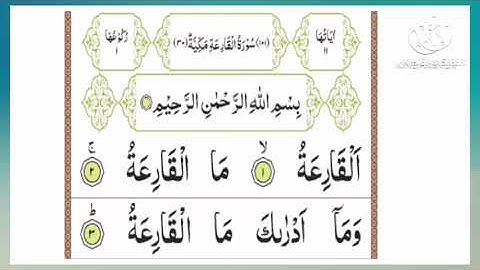 اٰيَاتُهَا ١١ (١٠١) سُوْرَةُ الْقَارِعَةِ مَكِّيَّةٌ (٣٠) رُكُوْعُهَا ١
بِسْمِ اللّٰهِ الرَّحْمٰنِ الرَّحِيْمِ
اَلْقَارِعَةُ ۙ ١ مَا الْقَارِعَةُ ۚ ٢
وَمَاۤ اَدْرٰىكَ مَا الْقَارِعَةُ ؕ ٣